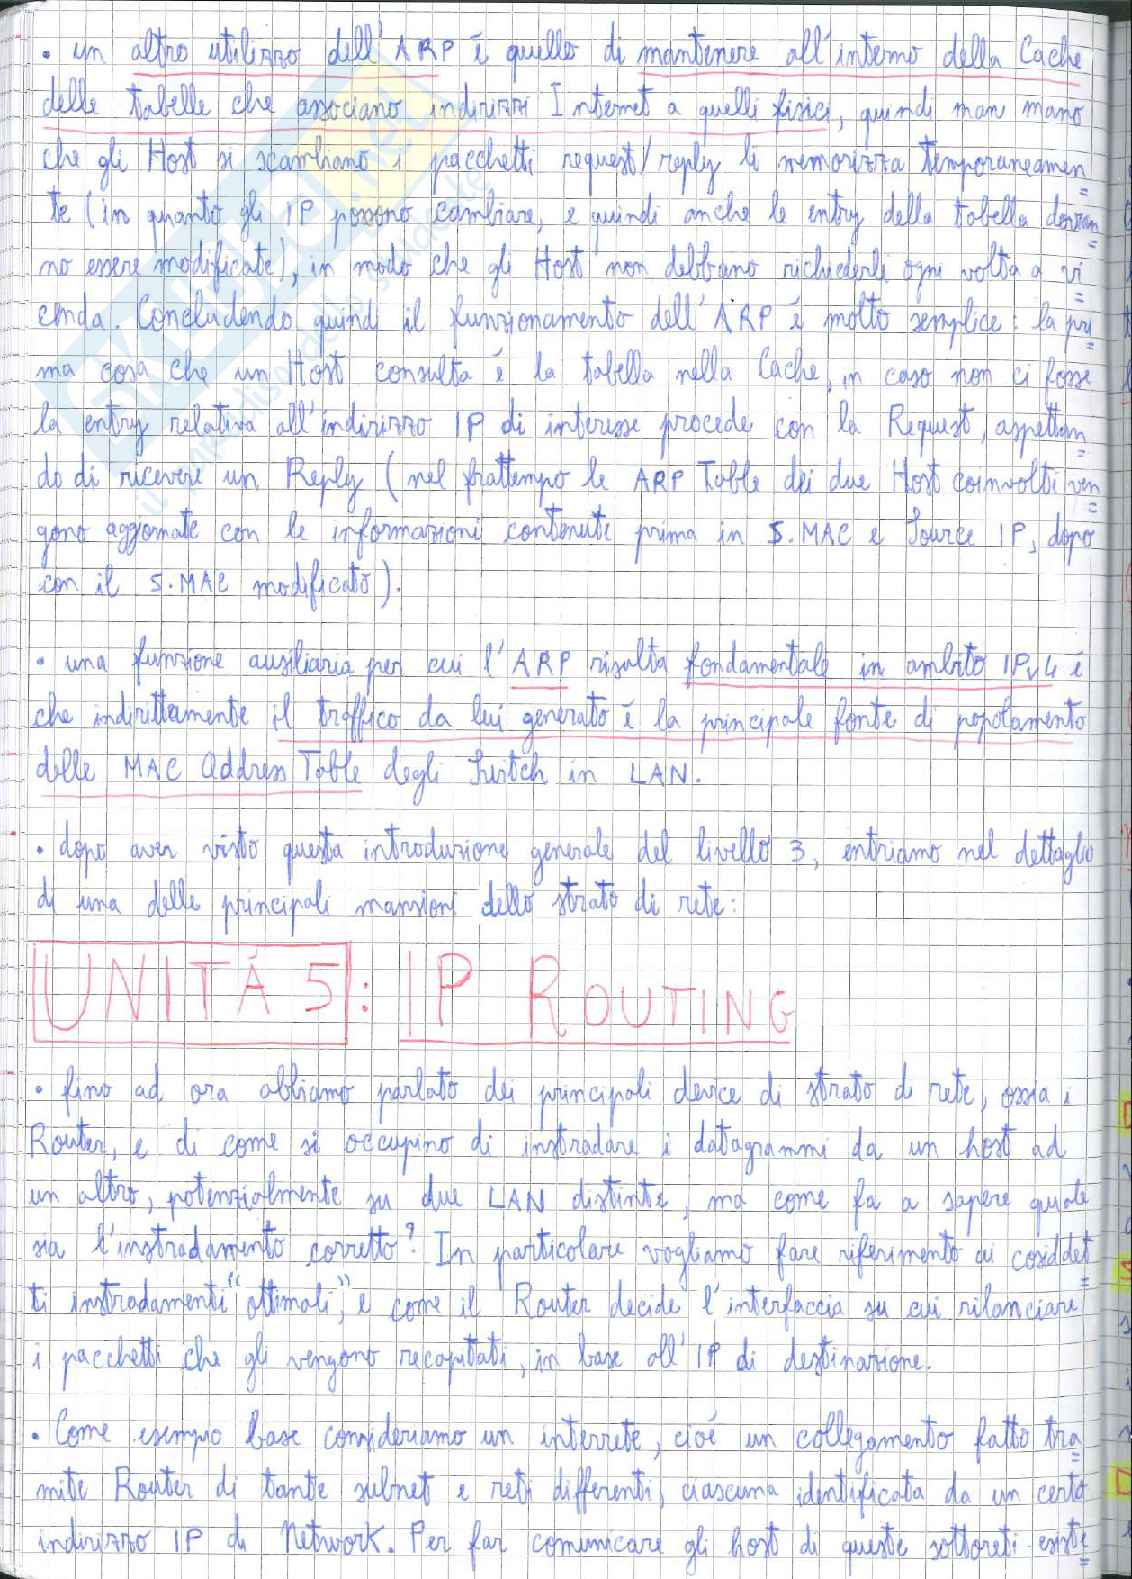 • un altro utilizzo dell'ARP è quello di mantenere all'interno della Cache
delle tabelle che associano indirizzi Internet a quelli fisici, quindi man mano
che gli Host si scambiano i pacchetti request/reply li memorizza temporaneamen=
te (in quanto gli IP possono cambiare, e quindi anche le entry della tabella dovran=
no essere modificate), in modo che gli Host non debbano richiederli ogni volta a vi=
cenda. Concludendo quindi il funzionamento dell'ARP è molto semplice: la pri=
ma cosa che un Host consulta è la tabella nella Cache, in caso non ci fosse
la entry relativa all'indirizzo IP di interesse procede con la Request, aspettan=
do di ricevere un Reply (nel frattempo le ARP Table dei due Host coinvolti ven=
gono aggiornate con le informazioni contenute prima in S.MAC e Source IP, dopo
con il S.MAC modificato).
• una funzione ausiliaria per cui l'ARP risulta fondamentale in ambito IPv4 è
che indirettamente il traffico da lui generato è la principale fonte di popolamento
delle MAC Address Table degli Switch in LAN.
• dopo aver visto questa introduzione generale del livello 3, entriamo nel dettaglio
di una delle principali mansioni dello strato di rete:
UNITÀ 5: IP ROUTING
• fino ad ora abbiamo parlato dei principali device di strato di rete, ossia i
Router, e di come si occupino di instradare i datagrammi da un host ad
un altro, potenzialmente su due LAN distinte, ma come fa a sapere quale
sia l'instradamento corretto? In particolare vogliamo fare riferimento ai cosiddet=
ti instradamenti "ottimali", e come il Router decide l'interfaccia su cui rilanciare
i pacchetti che gli vengono recapitati, in base all'IP di destinazione.
• Come esempio base consideriamo un interrete, cioè un collegamento fatto tra=
mite Router di tante subnet e reti differenti, ciascuna identificata da un certo
indirizzo IP di Network. Per far comunicare gli host di queste sottoreti esiste=